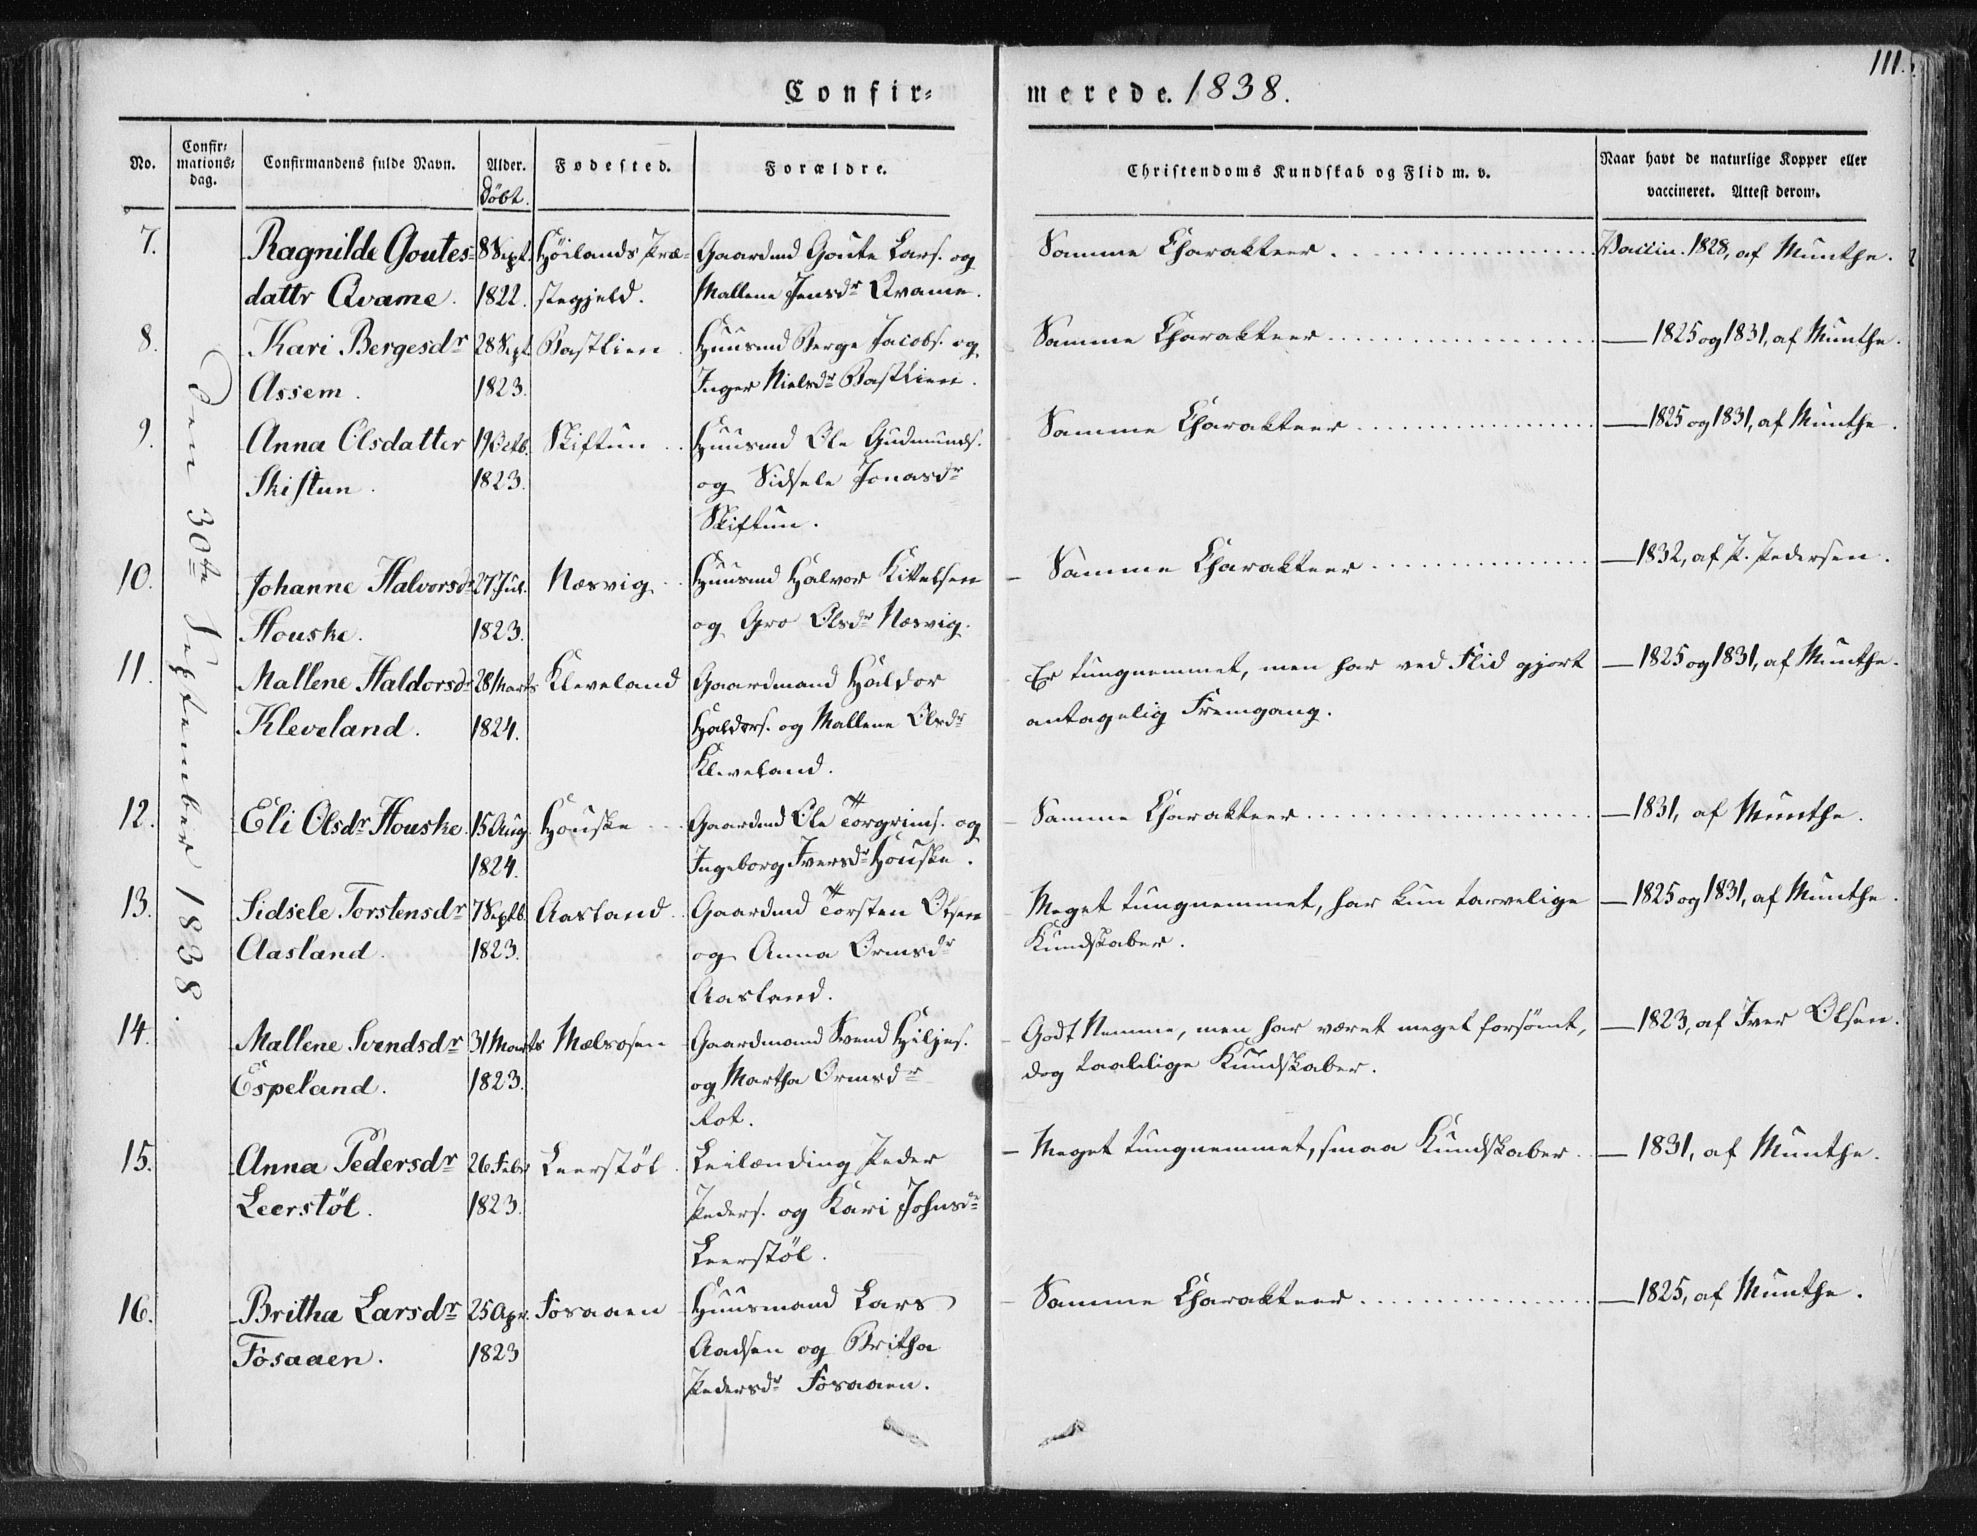 111.
Confir= merede. 1838.
No.
Confir=
mations=
dag.
Confirmandens fulde Navn.
Alder.
Döbt.
Fødested.
Forældre.
Christendoms Kundskab og Flid m. v.
Naar havt de naturlige Kopper eller
vaccineret. Attest derom.
Den 30te September 1838.
7. Ragnilde Goutes= 8 Sept. Höilands Præ= Gaardmd Goute Lars. og Samme Charakteer Vaccin. 1828, af Munthe.
dattr Qvame. 1822. stegjeld. Mallene Jensdr Qvame.
8. Kari Bergesdr 28 Sept. Bastlien Huusmd Berge Jacobs. og Samme Charakteer — 1825 og 1831, af Munthe.
Assem. 1823. Inger Nielsdr Bastlien.
9. Anna Olsdatter 19 Octb. Skiftun Huusmd Ole Gudmunds. Samme Charakteer — 1825 og 1831, af Munthe.
Skiftun. 1823. og Sidsele Jonasdr
Skiftun.
10. Johanne Halvorsdr 27 Jul. Næsvig Huusmd Halvor Kittelsen Samme Charakteer — 1832, af P. Pedersen.
Houske. 1823. og Gro Olsdr Næsvig.
11. Mallene Haldorsdr 28 Marts Kleveland Gaardmand Haldor Er tungnemmet, men har ved Flid gjort — 1825 og 1831, af Munthe.
Kleveland. 1824. Haldors. og Mallene Olsdr antagelig Fremgang.
Kleveland.
12. Eli Olsdr Houske 15 Aug. Houske Gaardmd Ole Torgrims. og Samme Charakteer — 1831, af Munthe.
1824. Ingeborg Iversdr Houske.
13. Sidsele Torstensdr 7 Septb. Aasland Gaardmd Torsten Olsen Meget tungnemmet, har kun tarvelige — 1825 og 1831, af Munthe.
Aasland. 1823. og Anna Ormsdr Kundskaber.
Aasland.
14. Mallene Svendsdr 31 Marts Mælsosen Gaardmand Svend Hiljes. Godt Nemme, men har været meget forsömt, — 1823, af Iver Olsen.
Espeland. 1823. og Martha Ormsdr dog taalelige Kundskaber.
Rot.
15. Anna Pedersdr 26 Febr Leerstöl Leilænding Peder — Meget tungnemmet, smaa Kundskaber. — 1831, af Munthe.
Leerstöl. 1823. Peders. og Kari Johnsdr
Leerstöl.
16. Britha Larsdr 25 Apr. Fosaaen Huusmand Lars Samme Charakteer — 1825, af Munthe.
Fosaaen. 1823 Aadsen og Britha
Pedersdr Fosaaen.